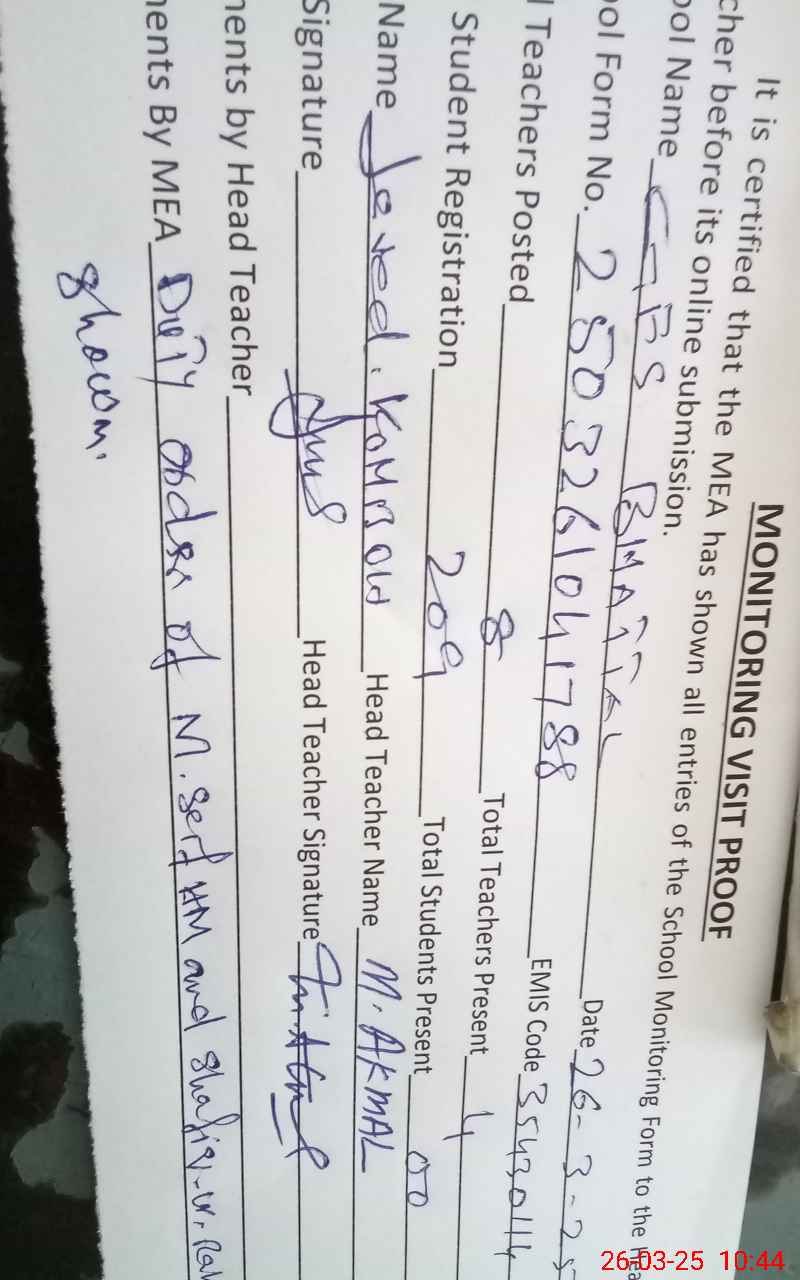 MONITORING VISIT PROOF
It is certified that the MEA has shown all entries of the School Monitoring Form to the Hea
cher before its online submission.
ool Name GBS BHATTAL Date 26-3-25
ool Form No. 2503261041788 EMIS Code 35430114
l Teachers Posted 8 Total Teachers Present 4
Student Registration 209 Total Students Present 00
Name Javed. Head Teacher Name M. AKMAL
Signature Head Teacher Signature
nents by Head Teacher
nents By MEA Duty order of M. Seif HM and Shafiq-ur. Rah
shown.
26-03-25 10:44